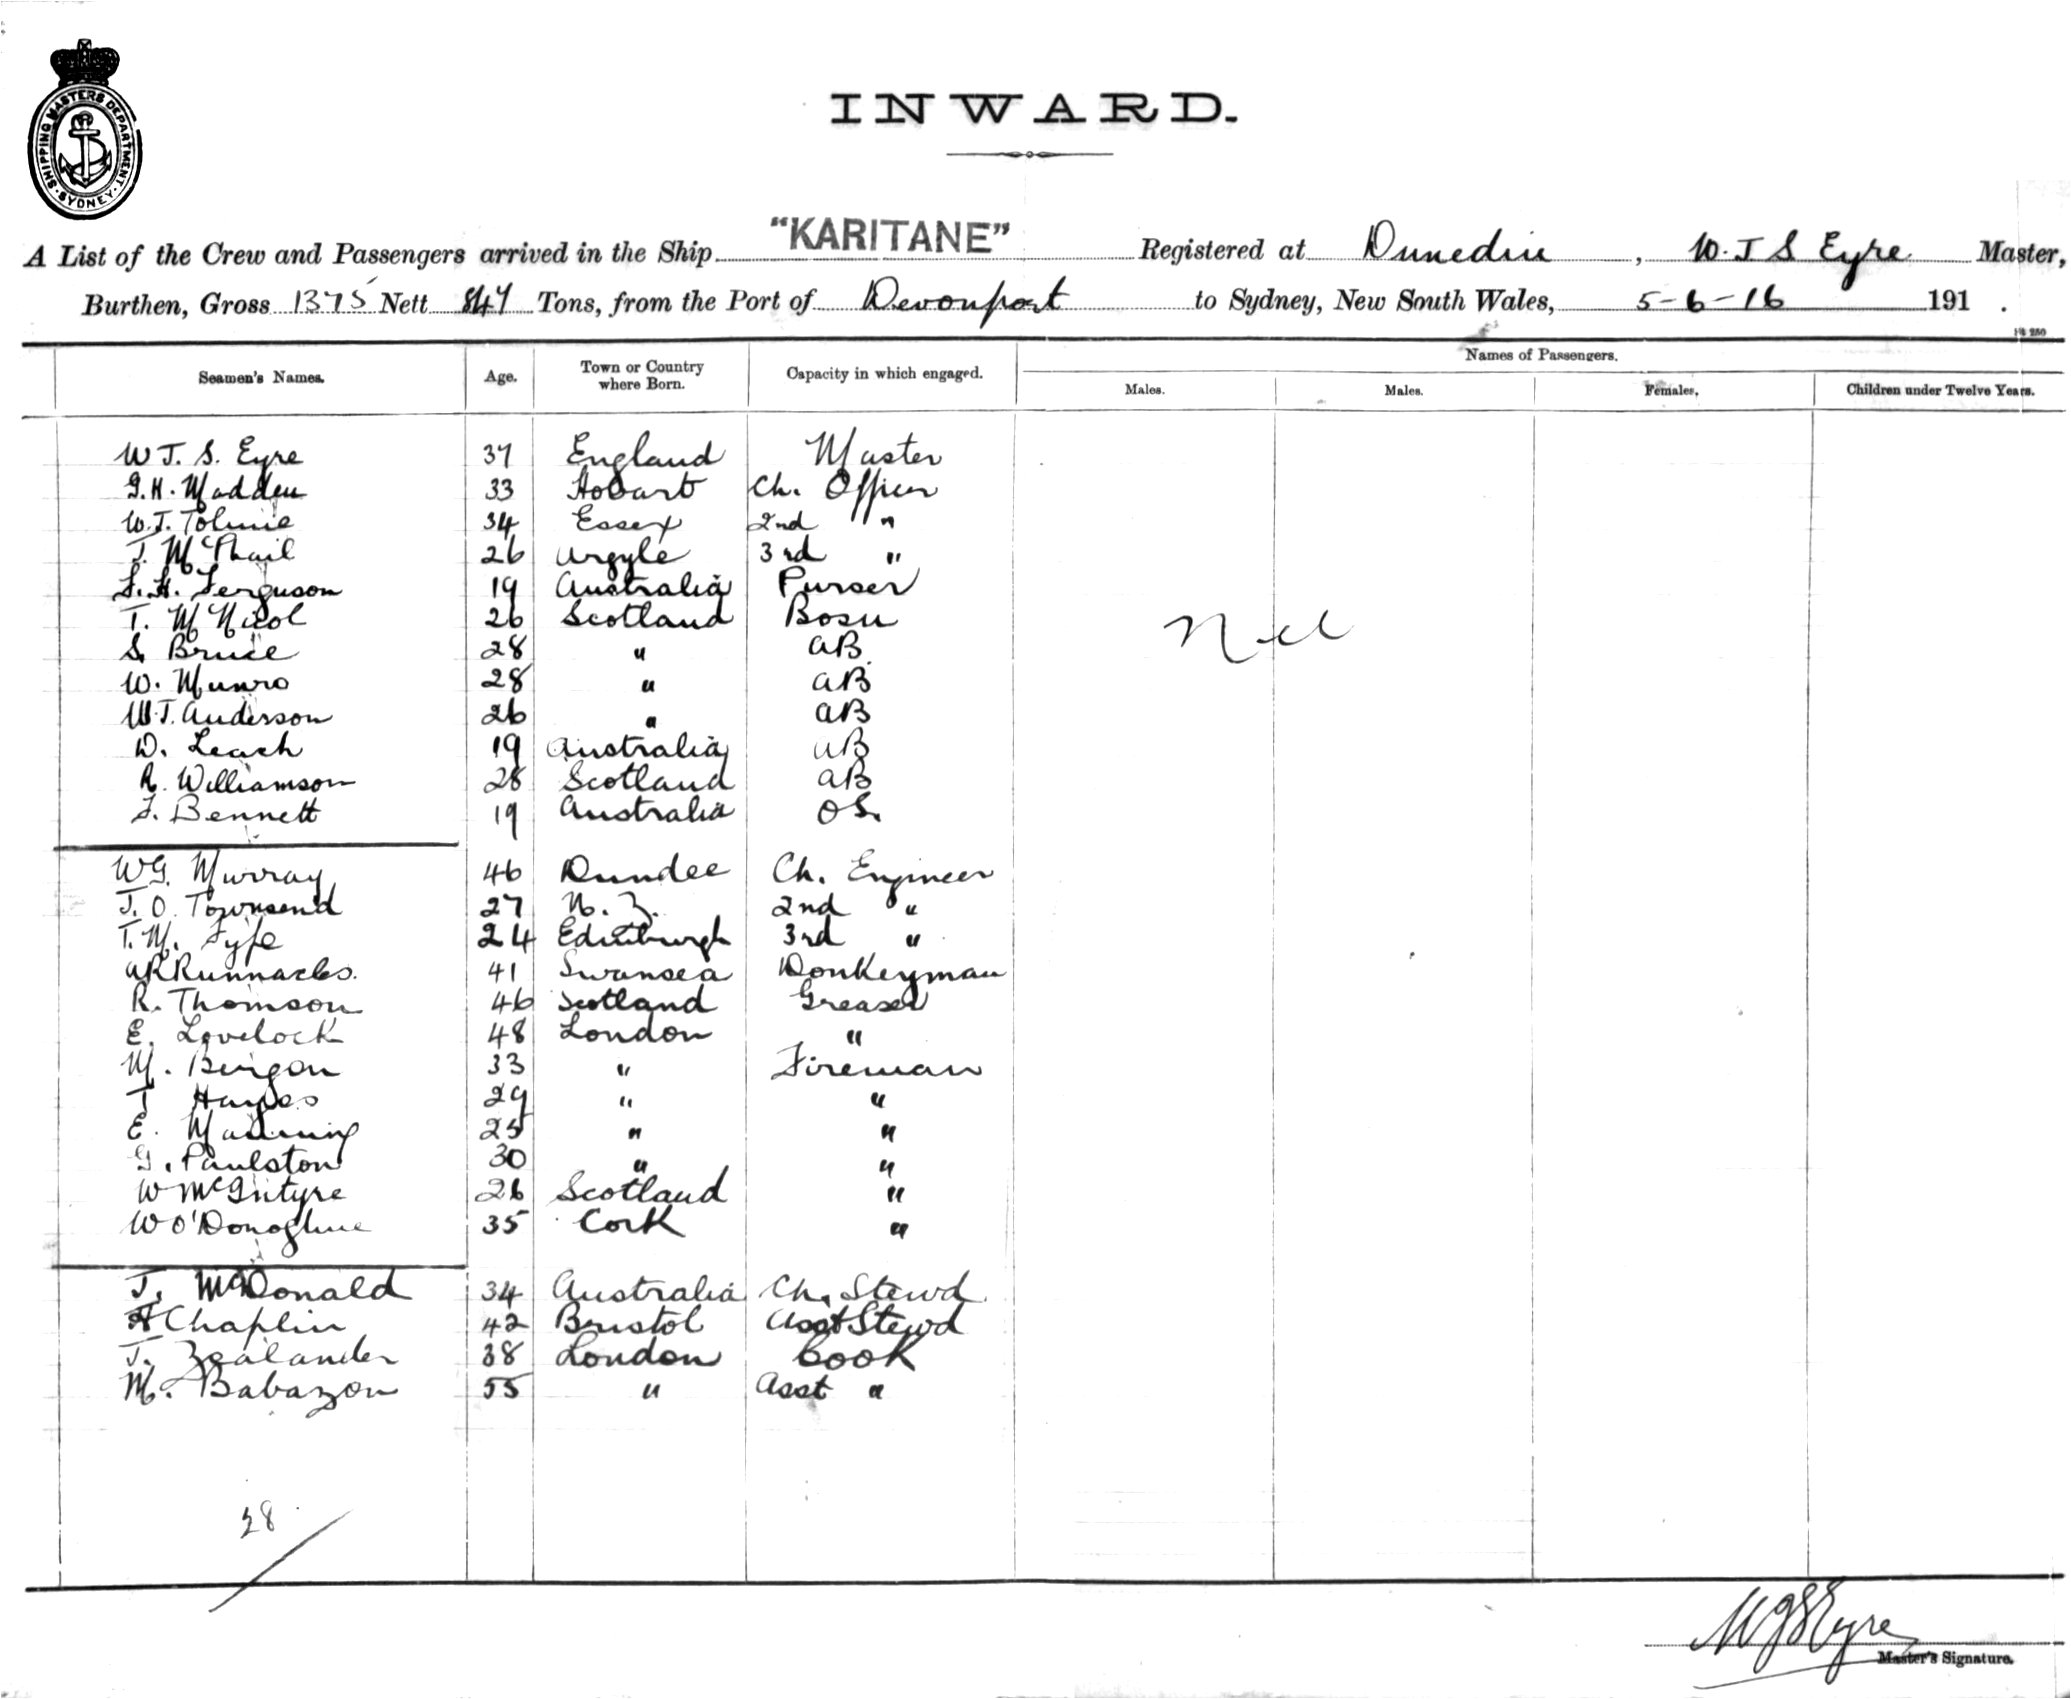 SHIPPING MASTERS DEPARTMENT. SYDNEY
INWARD.
A List of the Crew and Passengers arrived in the Ship "KARITANE" Registered at Dunedin, W. J S Eyre Master,
Burthen, Gross 1375 Nett 847 Tons, from the Port of Devonport to Sydney, New South Wales, 5-6-16 191 .
Names of Passengers.
Seamen's Names. Age. Town or Country where Born. Capacity in which engaged. Males. Males. Females. Children under Twelve Years.
W J. S. Eyre 37 England Master
G. H. Madden 33 Hobart Ch. Officer
W. J. Tolmie 34 Essex 2nd "
J. McPhail 26 Argyle 3rd "
F. H. Ferguson 19 Australia Purser
T. McNicol 26 Scotland Bosn
Nil
S. Bruce 28 " AB
W. Munro 28 " AB
W. J. Anderson 26 " AB
D. Leach 19 Australia AB
R. Williamson 28 Scotland AB
F. Bennett 19 Australia OS.
W G. Murray 46 Dundee Ch. Engineer
J. O. Townsend 27 N. Z. 2nd "
T. M. Fyfe 24 Edinburgh 3rd "
A R Runnacles. 41 Swansea Donkeyman
R. Thomson 46 Scotland Greaser
E. Lovelock 48 London "
M. 33 " Fireman
T Hayes 29 " "
E. Manning 25 " "
G. Paulston 30 " "
W McIntyre 26 Scotland "
W O'Donoghue 35 Cork "
J. McDonald 34 Australia Ch. Stewd
H Chaplin 42 Bristol Asst Stewd
J. Zealander 38 London Cook
M. Babazon 55 " Asst "
28
W J S Eyre
Master's Signature.